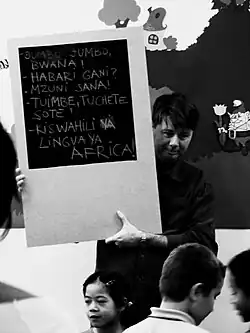 -JUMBO JUMBO,
BWANA!
- HABARI GANI?
- MZUNI SANA!
-TUIMBE,TUCHETE
SOTE!
- KISWAHILI YA
LINGUA YA
AFRICA!